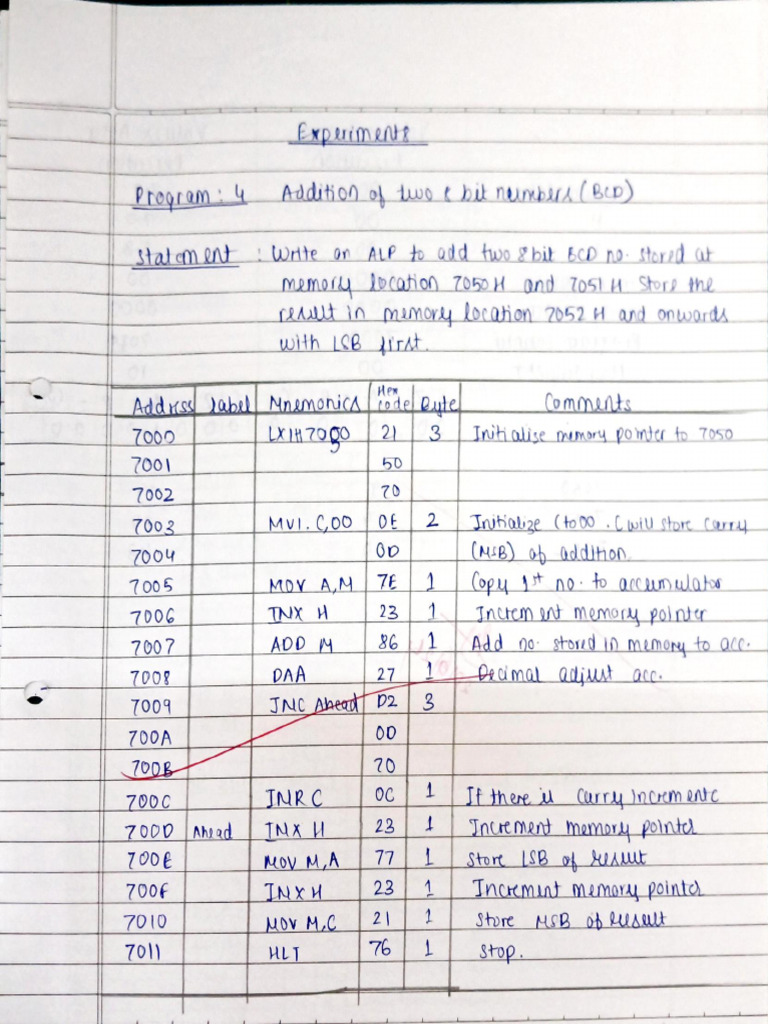 Experiments
Program : 4 Addition of two 8 bit numbers (BCD)
Statement : Write an ALP to add two 8 bit BCD no. stored at
memory location 7050 H and 7051 H Store the
result in memory location 7052 H and onwards
with LSB first.
Address Label Mnemonics Hex code Byte Comments
7000 LXI H 7050 21 3 Initialise memory pointer to 7050
7001 50
7002 70
7003 MVI. C,00 0E 2 Initialize C to 00 . C will store carry
7004 00 (MSB) of addition.
7005 MOV A,M 7E 1 Copy 1st no. to accumulator
7006 INX H 23 1 Increment memory pointer
7007 ADD M 86 1 Add no. stored in memory to acc.
7008 DAA 27 1 Decimal adjust acc.
7009 JNC Ahead D2 3
700A 0D
700B 70
700C INR C 0C 1 If there is carry increment c
700D Ahead INX H 23 1 Increment memory pointer
700E MOV M,A 77 1 Store LSB of result
700F INX H 23 1 Increment memory pointer
7010 MOV M,C 21 1 Store MSB of result
7011 HLT 76 1 Stop.